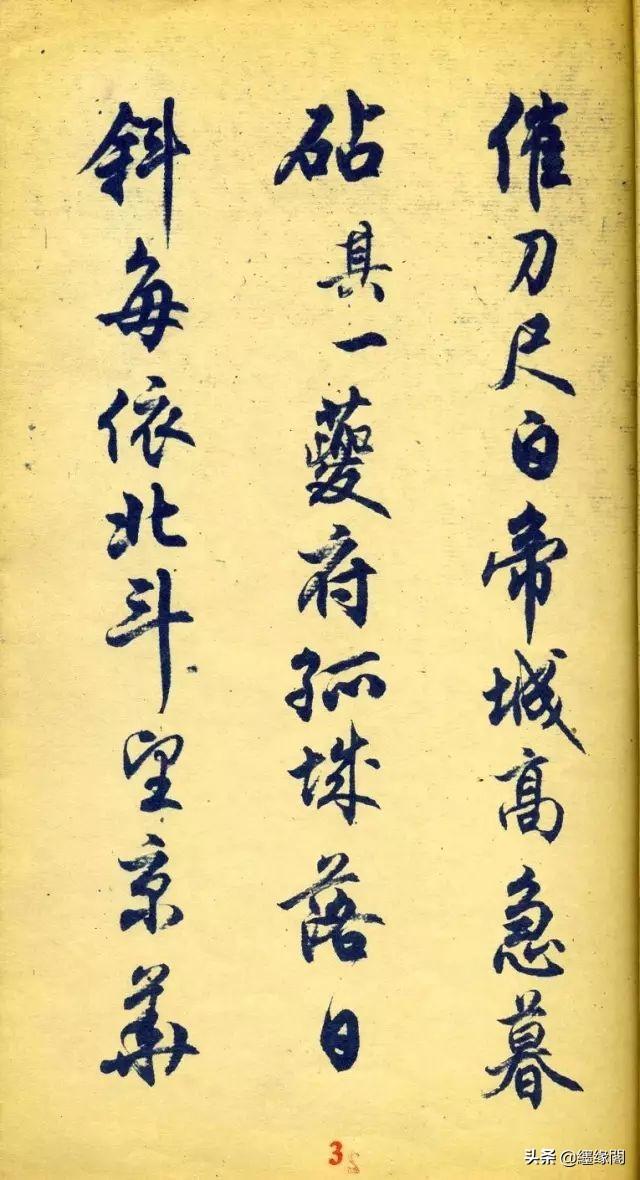 催刀尺白帝城高急暮
砧其一夔府孤城落日
斜每依北斗望京华
3
头条 @纆缘阁